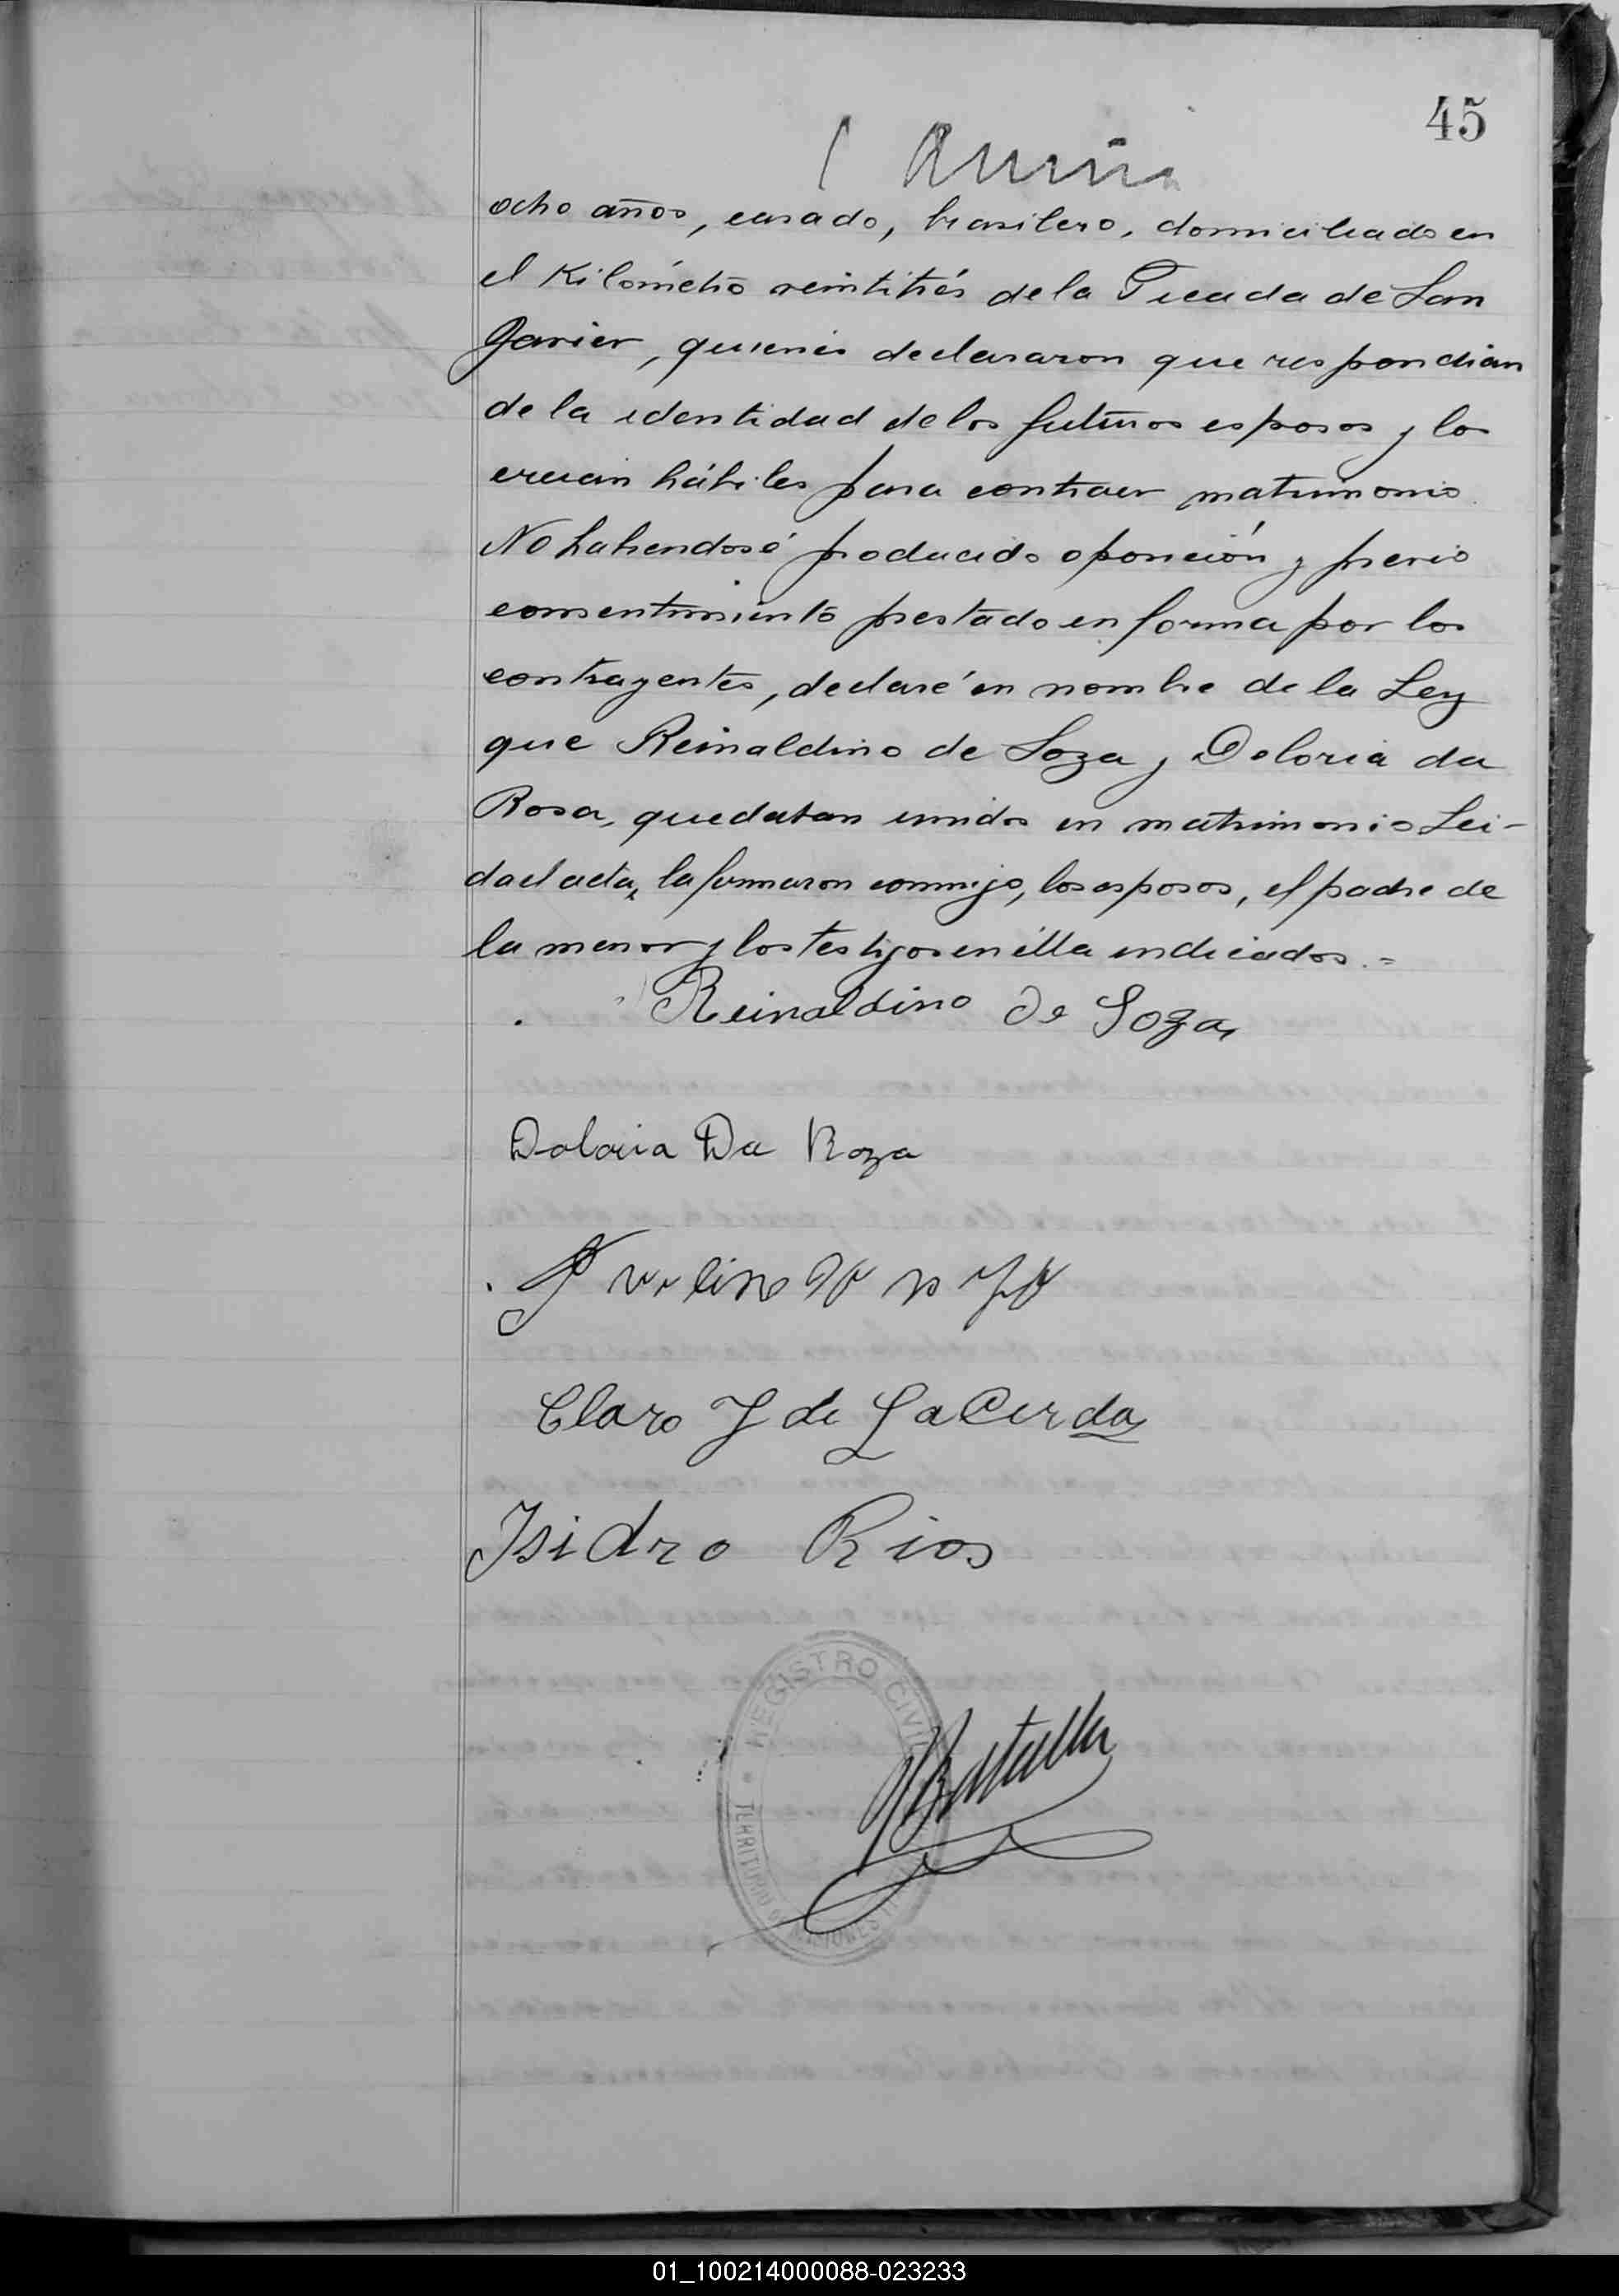 45
ocho años, casado, brasilero, domiciliado en
el Kilómetro veintitrés de la Picada de San
Javier, quienes declararon que respondian
de la identidad de los futuros esposos y los
creian hábiles para contraer matrimonio.
No habiendosé producido oposición y previo
consentimiento prestado en forma por los
contrayentes, declaré en nombre de la Ley
que Reinaldino de Soza y Doloria da
Rosa, quedaban unidos en matrimonio Lei-
da el acta, la firmaron conmigo, los esposos, el padre de
la menor y los testigos en élla indicados.=
Reinaldino de Soza
Doloria Da Roza
Claro J de LaCerda
Isidro Rios
REGISTRO CIVIL
TERRITORIO DE MISIONES
01_100214000088-023233